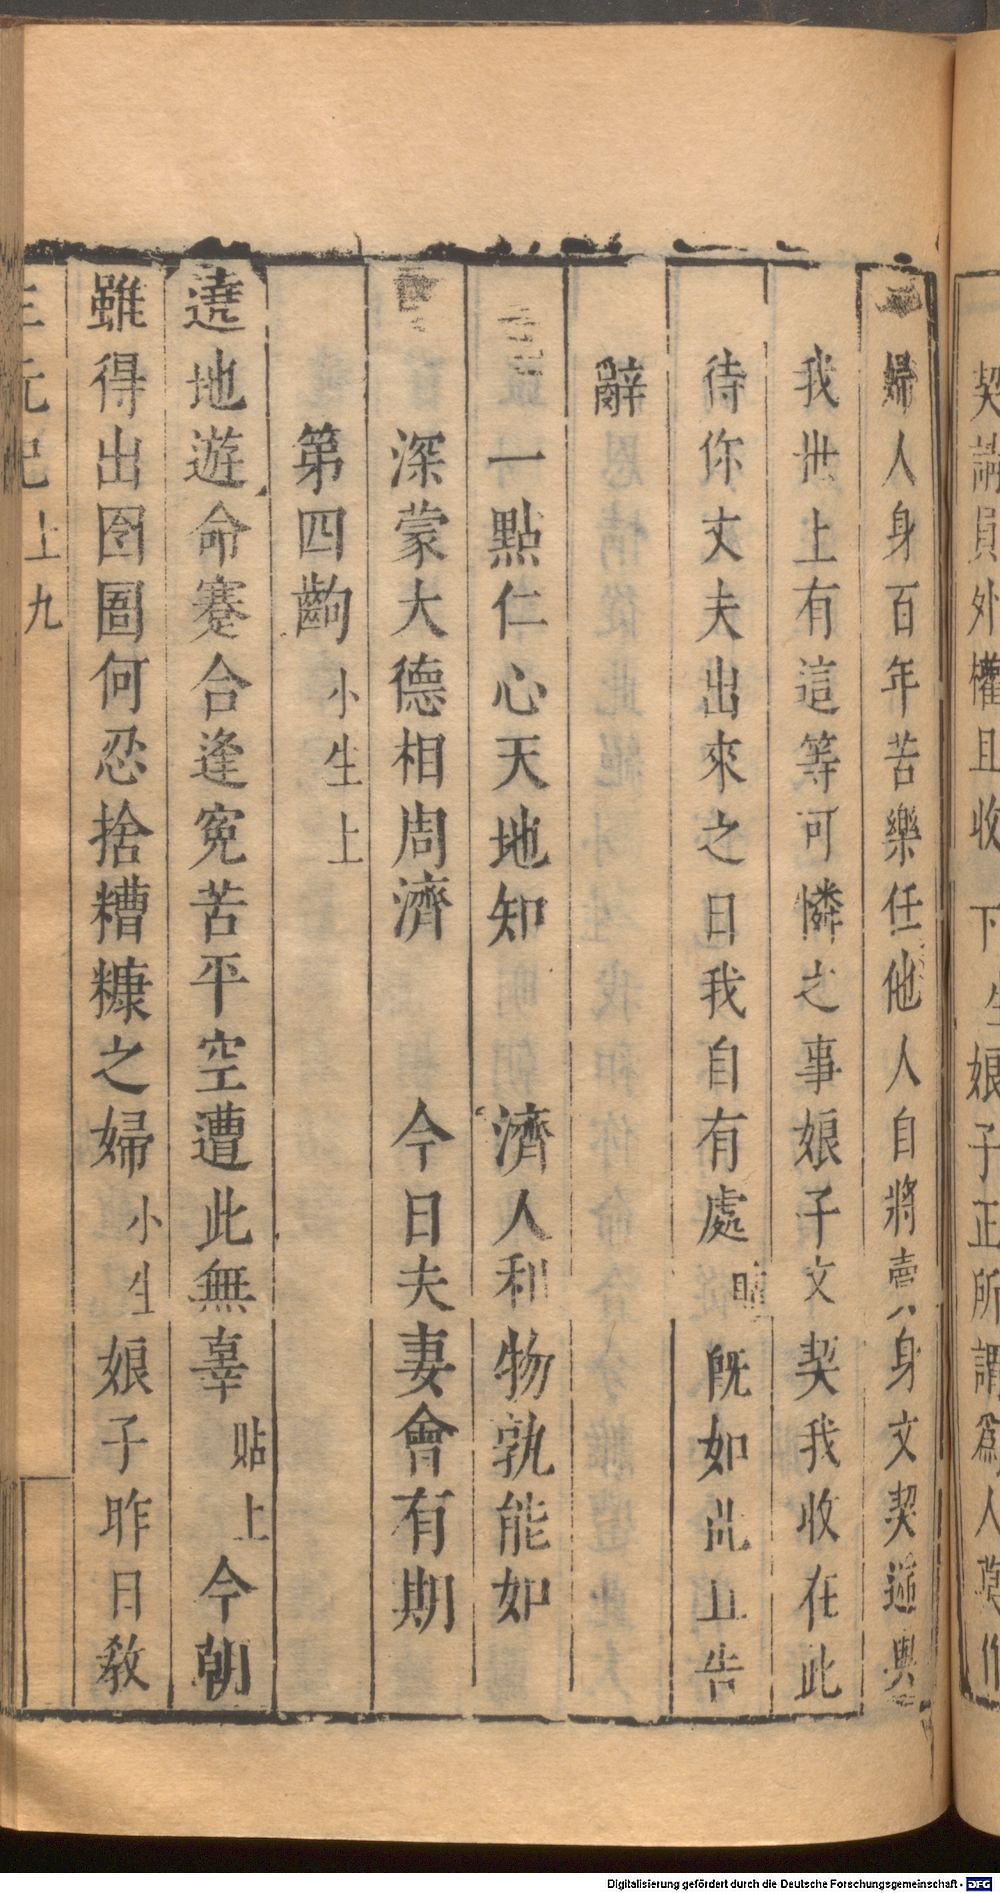 契 員外權且收 下 娘子正所謂為人莫作
婦人身百年苦樂任他人自將賣身文契遞與
我世上有這等可憐之事娘子文契我收在此
待你丈夫出來之日我自有處 旣如此 告
辭
一點仁心天地知 濟人利物孰能如
深蒙大德相周濟 今日夫妻會有期
第四齣 小生上
遶地遊命蹇合逢寃苦平空遭此無辜 貼上今朝
雖得出囹圄何忍捨糟糠之婦 小生娘子昨日教
三元記 上 九
Digitalisierung gefördert durch die Deutsche Forschungsgemeinschaft - DFG